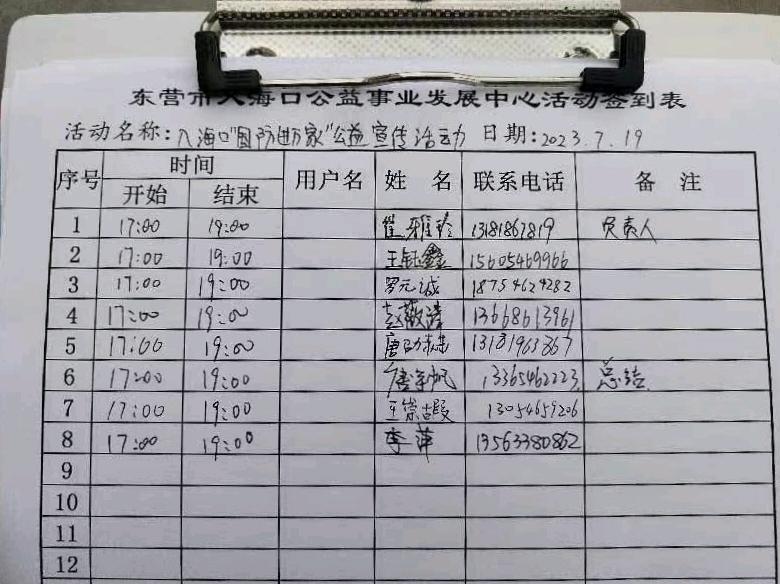 东营市大海口公益事业发展中心活动签到表
活动名称：入海口“国防进万家”公益宣传活动 日期：2023.7.19
序号 时间 用户名 姓 名 联系电话 备 注
开始 结束
1 17:00 19:00 崔雅玲 13181867819 负责人
2 17:00 19:00 王钰鑫 15605469966
3 17:00 19:00 罗元诚 18754624282
4 17:00 19:00 赵敬涛 13668613961
5 17:00 19:00 唐 13181963867
6 17:00 19:00 唐 帆 13365462223 总结
7 17:00 19:00 王崇 13054659206
8 17:00 19:00 李萍 13563380862
9
10
11
12